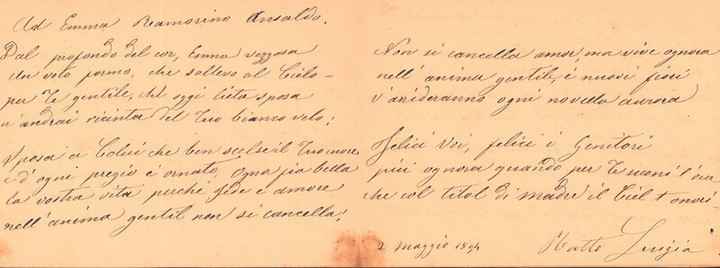 Ad Emma Ramorino Ansaldo.
Dal profondo del cor, Emma vezzosa
Un voto formo, che sollevo al Cielo
per Te gentile, che oggi lieta sposa
n'andrai ricinta del Tuo bianco velo!
Sposa a Colui che ben scelse il Tuo cuore
e d'ogni pregio è ornato, ogna fia bella
la vostra vita perchè fede e amore
nell'anima gentil non si cancella!
Non si cancella amor ma vive ognora
nell'anima gentile, e nuovi fiori
v'anideranno ogni novella aurora
Felici Voi, felici i Genitori
più ognora quando per Te suoni l'ora
che col titol di madre il Ciel t'onori.
2 Maggio 1894 Ratto Luigia